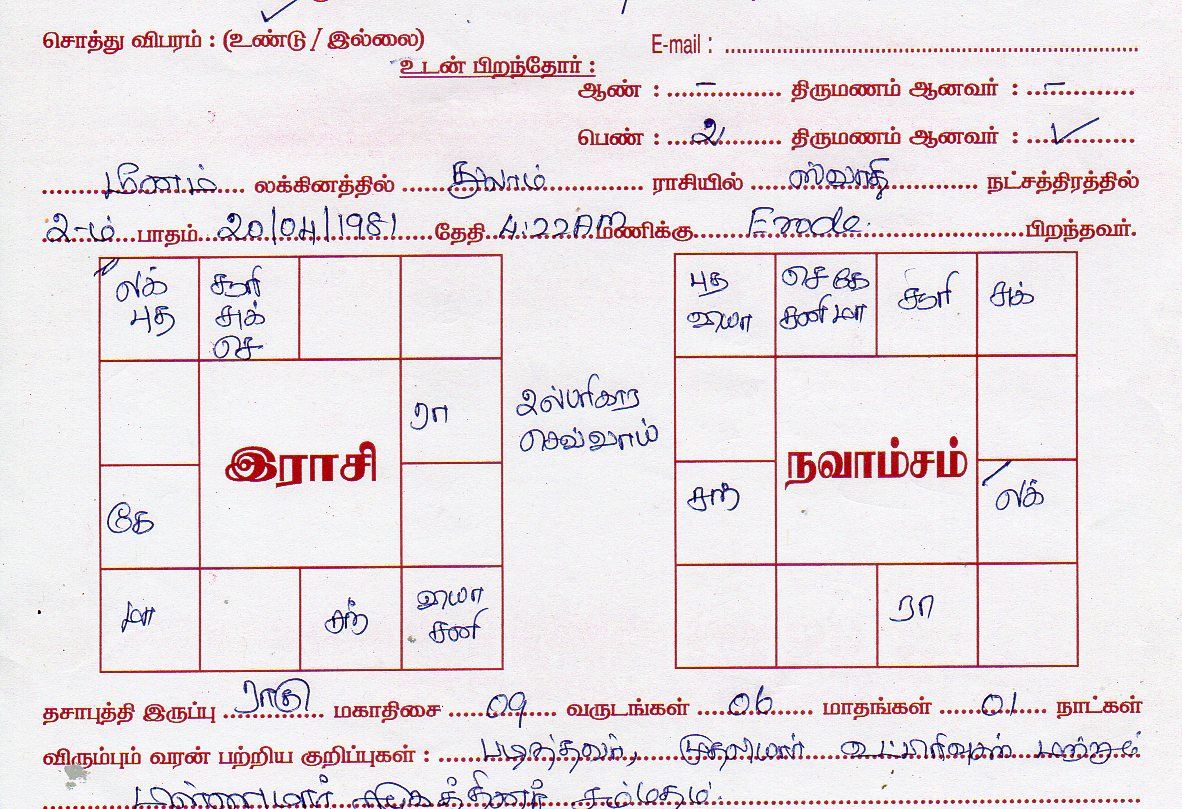 சொத்து விபரம் : (உண்டு / இல்லை)
E-mail :
உடன் பிறந்தோர் :
ஆண் : – திருமணம் ஆனவர் : –
பெண் : 2 திருமணம் ஆனவர் : ✓
மீனம் லக்கினத்தில் துலாம் ராசியில் ஸ்வாதி நட்சத்திரத்தில்
2-ம் பாதம் 20/04/1981 தேதி 4:22AM மணிக்கு Erode. பிறந்தவர்.
லக் புத
சூரி சுக் செ
ரா
இராசி
கே
மா
சந்
வியா சனி
உல்பரிகார செவ்வாய்
புத வியா
செ கே சனி மா
சூரி
சுக்
நவாம்சம்
சந்
லக்
ரா
தசாபுத்தி இருப்பு ராகு மகாதிசை 09 வருடங்கள் 06 மாதங்கள் 01 நாட்கள்
விரும்பும் வரன் பற்றிய குறிப்புகள் : படித்தவர், முதலியார் உட்பிரிவுகள் மற்றும்
சம்மதம்.